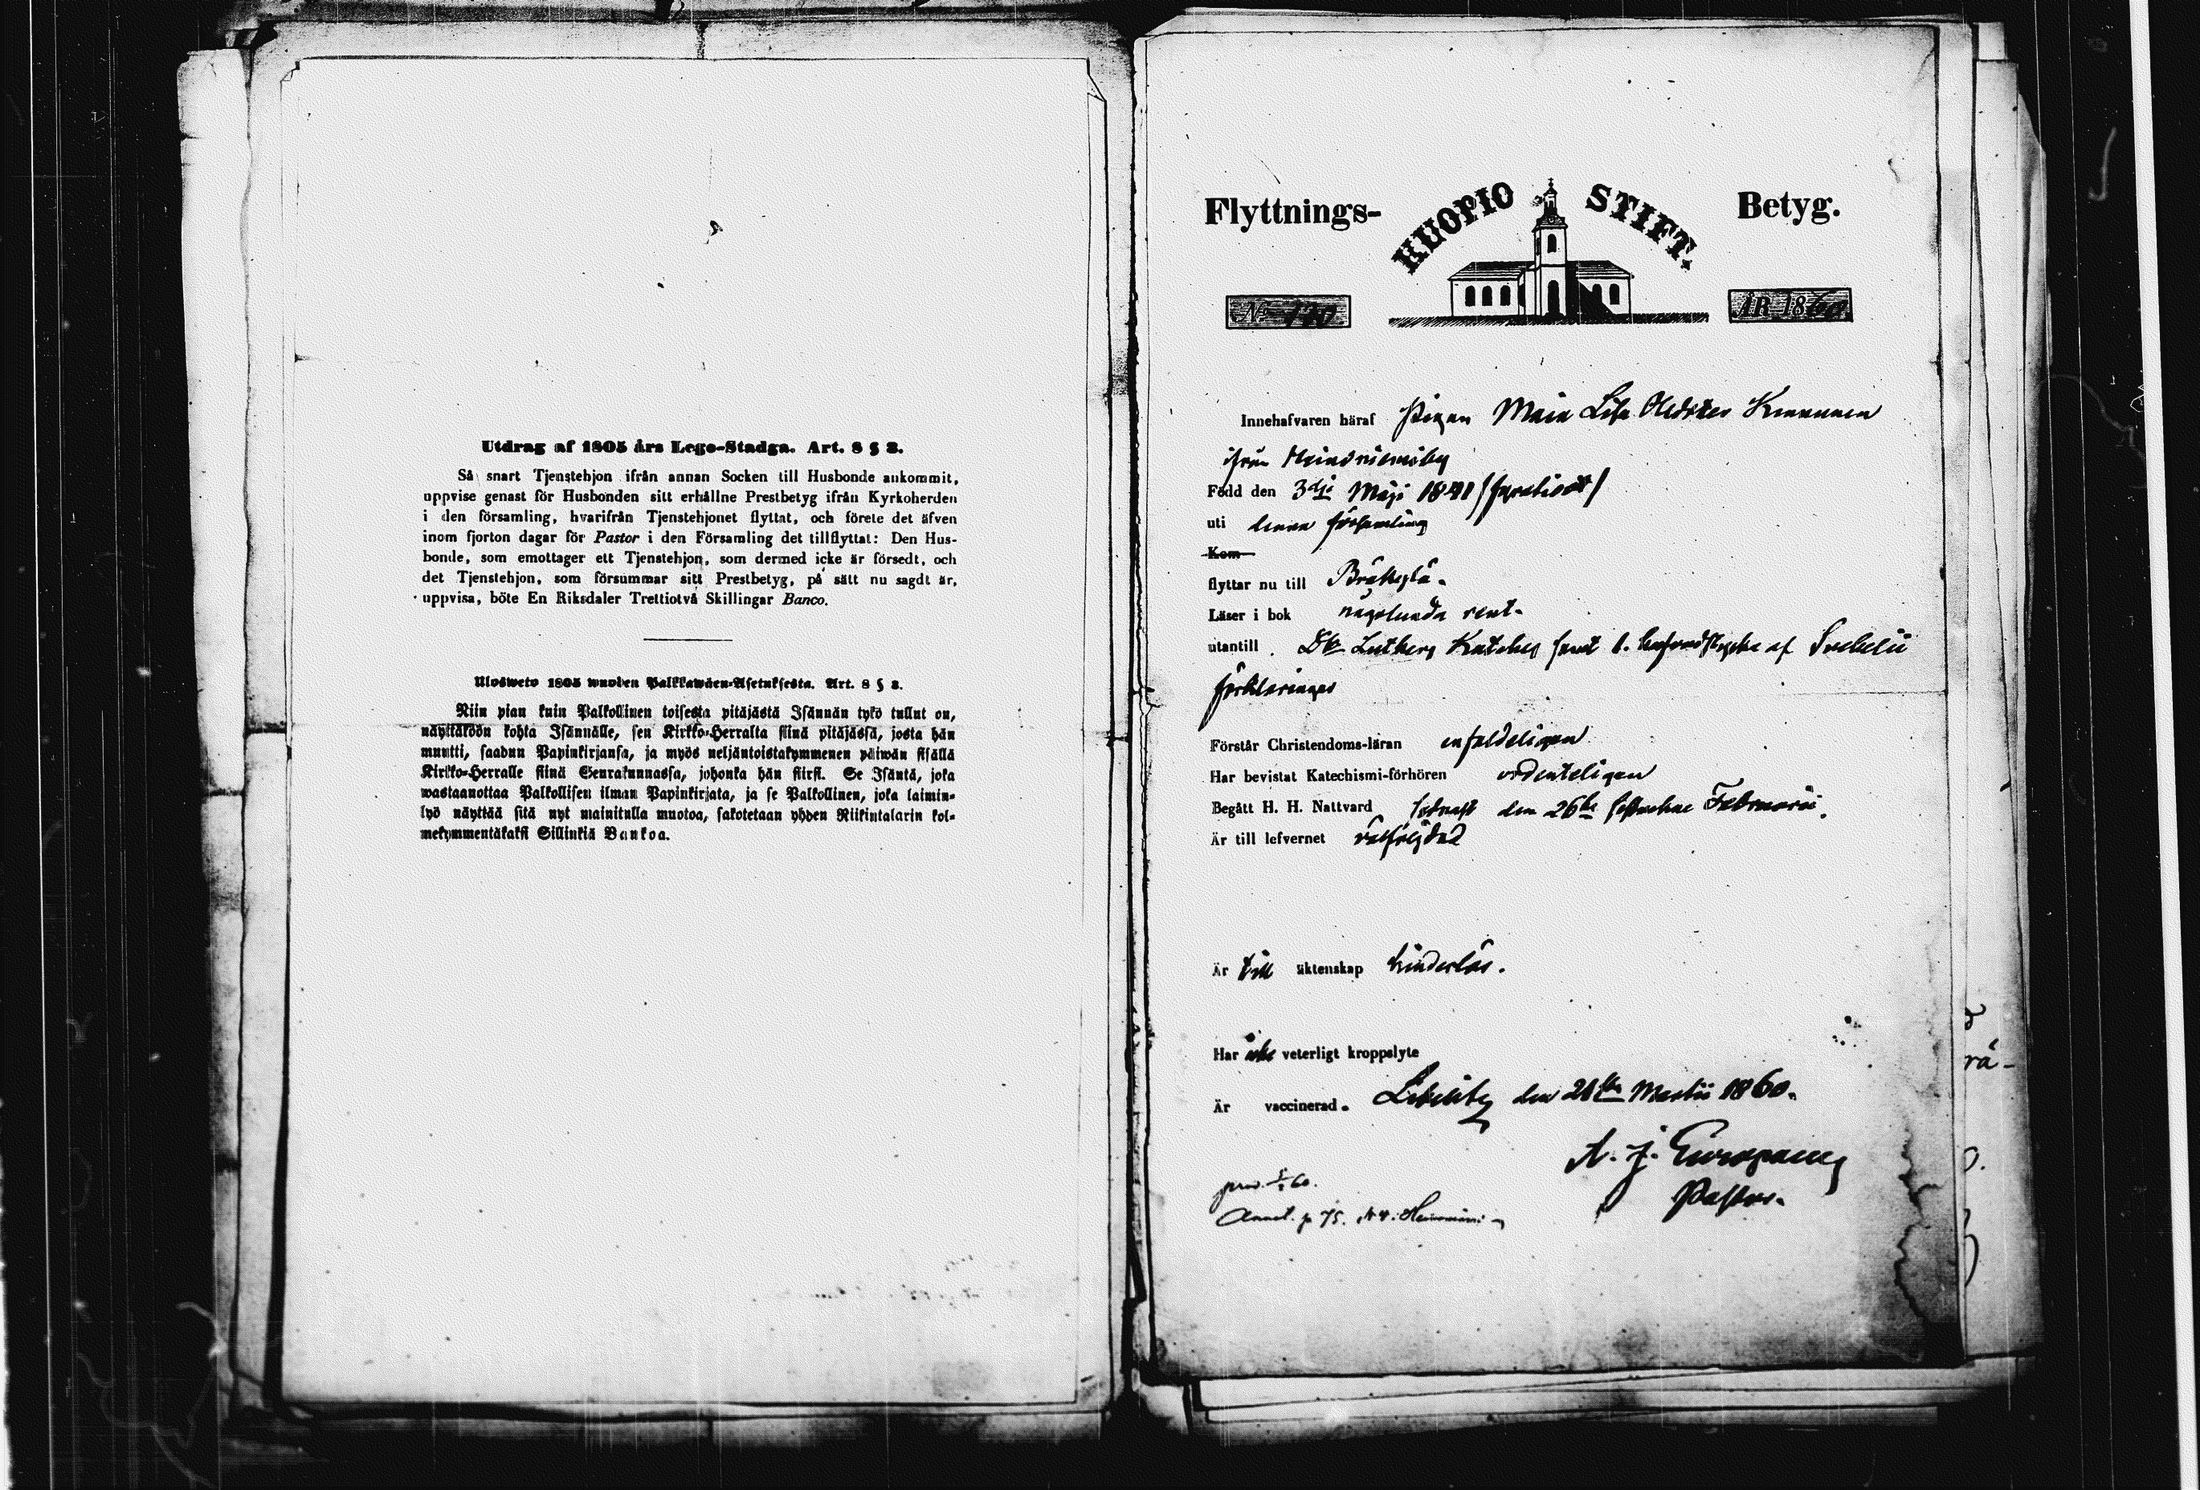 Utdrag af 1805 års Lego-Stadga. Art. 8 § 8.
Så snart Tjenstehjon ifrån annan Socken till Husbonde ankommit,
uppvise genast för Husbonden sitt erhållne Prestbetyg ifrån Kyrkoherden
i den församling, hvarifrån Tjenstehjonet flyttat, och förete det äfven
inom fjorton dagar för Pastor i den Församling det tillflyttat: Den Hus-
bonde, som emottager ett Tjenstehjon, som dermed icke är försedt, och
det Tjenstehjon, som försummar sitt Prestbetyg, på sätt nu sagdt är,
uppvisa, böte En Riksdaler Trettiotvå Skillingar Banco.
Ulosweto 1805 wuoden Palkkawäen-Asetuksesta. Art. 8 § 8.
Niin pian kuin Palkollinen toisesta pitäjästä Isännän tykö tullut on,
näyttäköön kohta Isännälle, sen Kirkko-Herralta siinä pitäjässä, josta hän
muutti, saadun Papinkirjansa, ja myös neljäntoistakymmenen päiwän sisällä
Kirkko-Herralle siinä Seurakunnassa, johonka hän siirsi. Se Isäntä, joka
wastaanottaa Palkollisen ilman Papinkirjata, ja se Palkollinen, joka laimin-
lyö näyttää sitä nyt mainitulla muotoa, sakotetaan yhden Riikintalarin kol-
mekymmentäkaksi Sillinkiä Bankoa.
Flyttnings- HUOPIO STIFT. Betyg.
No 140 ÅR 1860
Innehafvaren häraf Pigan Maia Lisa Kinnunen
ifrån
Född den 3dji Maji 1841
uti denna församling
Kom
flyttar nu till Bräkylä.
Läser i bok någolunda rent.
utantill Dr Luthers Kateches samt af Svebelii
förklaringar
Förstår Christendoms-läran enfaldeligen
Har bevistat Katechismi-förhören ordenteligen
Begått H. H. Nattvard sednast den 26te sistledne Februarii.
Är till lefvernet välfrejdad
Är till äktenskap hinderlös.
Har icke veterligt kroppslyte
Är vaccinerad. Libelits den 21ste Martii 1860.
A. J. Europaeus
Pastor.
prod. 60.
Annot. p 75. N 4.